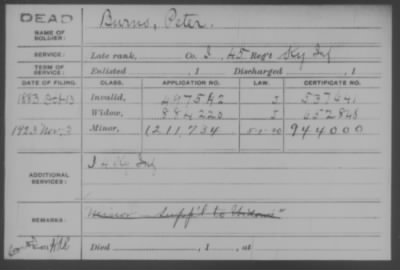 DEAD
NAME OF SOLDIER:
Burns, Peter.
SERVICE:
Late rank, Co. I, 45 Reg't Ky Inf
TERM OF SERVICE:
Enlisted , 1 Discharged , 1
DATE OF FILING. CLASS. APPLICATION NO. LAW. CERTIFICATE NO.
1883 Invalid, 497542 537641
Widow, 884220
1923 Nov. 3 Minor, 1211,734 944000
ADDITIONAL SERVICES:
REMARKS:
Minor Supp'l to Widow's"
Died , 1 , at